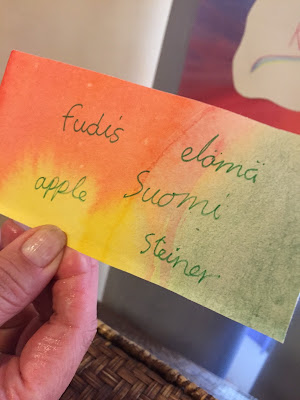 fudis
elämä
apple
Suomi
Steiner